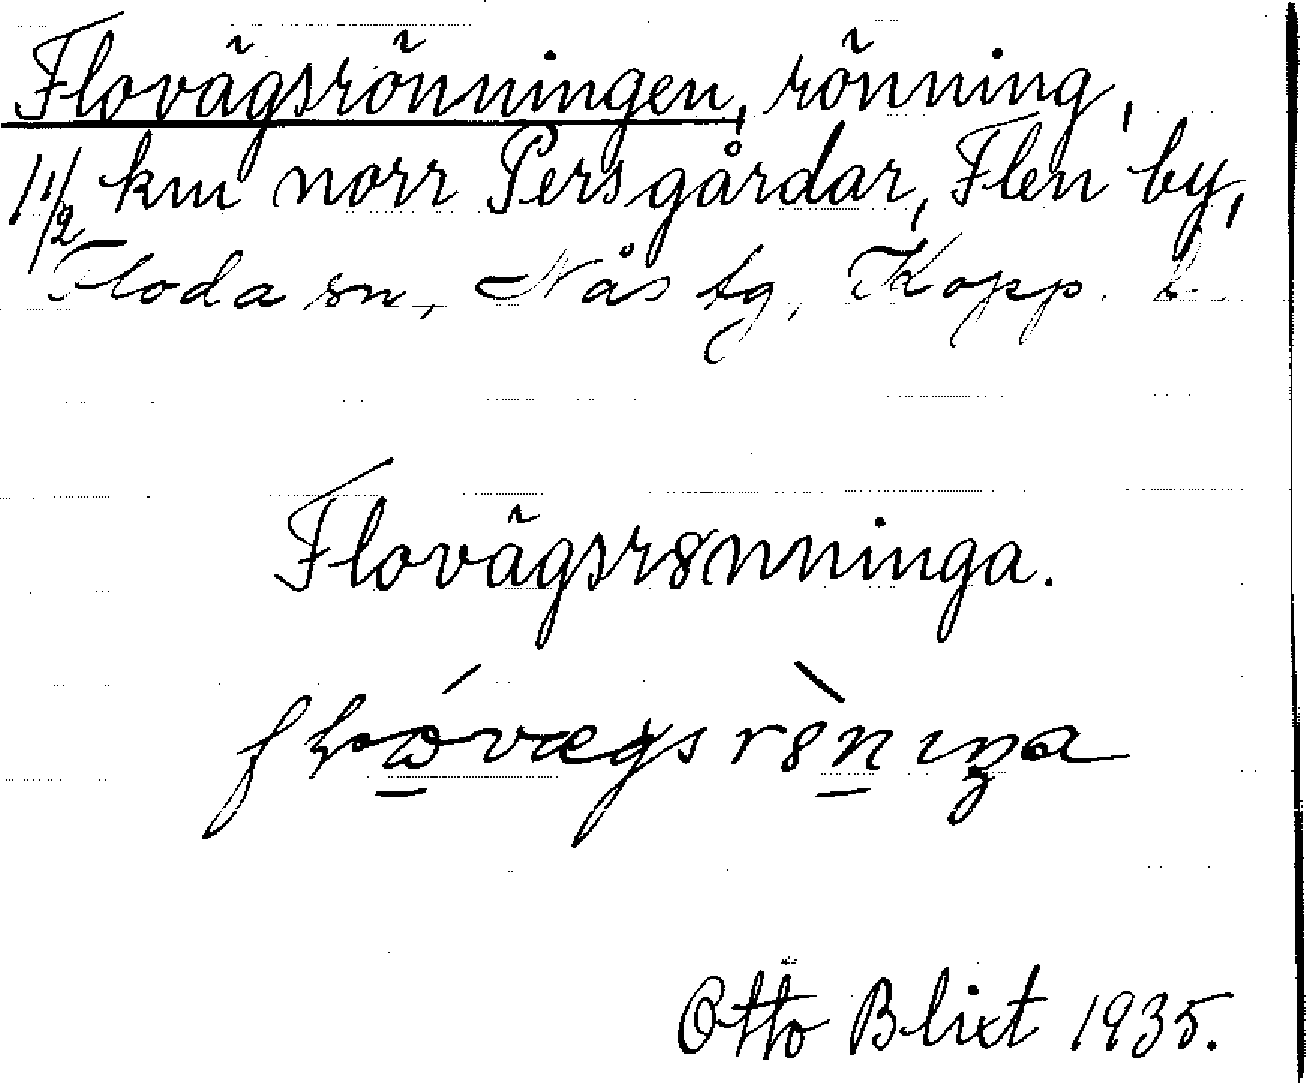 Flovägsrönningen, rönning,
1 1/2 km norr Persgårdar, Flen by,
Floda sn, Nås tg, Kopp. l.
Flovägsr8nninga.
Otto Blixt 1935.